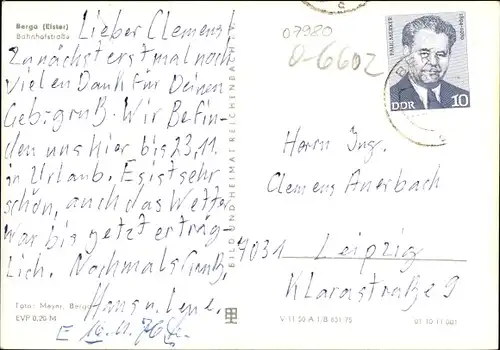 Berga (Elster)
Bahnhofstraße
Lieber Clemens!
Zunächst erst mal noch
vielen Dank für Deinen
Geb.-gruß. Wir befin-
den uns hier bis 23.11.
in Urlaub. Es ist sehr
schön, auch das Wetter
war bis jetzt erträg-
lich. Nochmals Gruß,
Hans u. Lene.
E 16.11.76
Foto: Meyer, Berga
EVP 0,20 M
BILD UND HEIMAT REICHENBACH
07980
0-6602
PAUL MERKER
DDR 10
Herrn Ing.
Clemens Auerbach
7031 Leipzig
Klarastraße 9
V 11 50 A 1/B 631/75
01 10 11 001